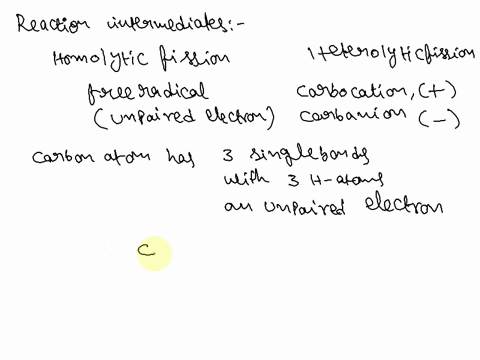 Reaction intermediates:-
Homolytic fission Heterolytic fission
free radical carbocation, (+)
(unpaired electron) carbanion (-)
carbon atom has 3 single bonds
with 3 H-atoms
an unpaired electron
C